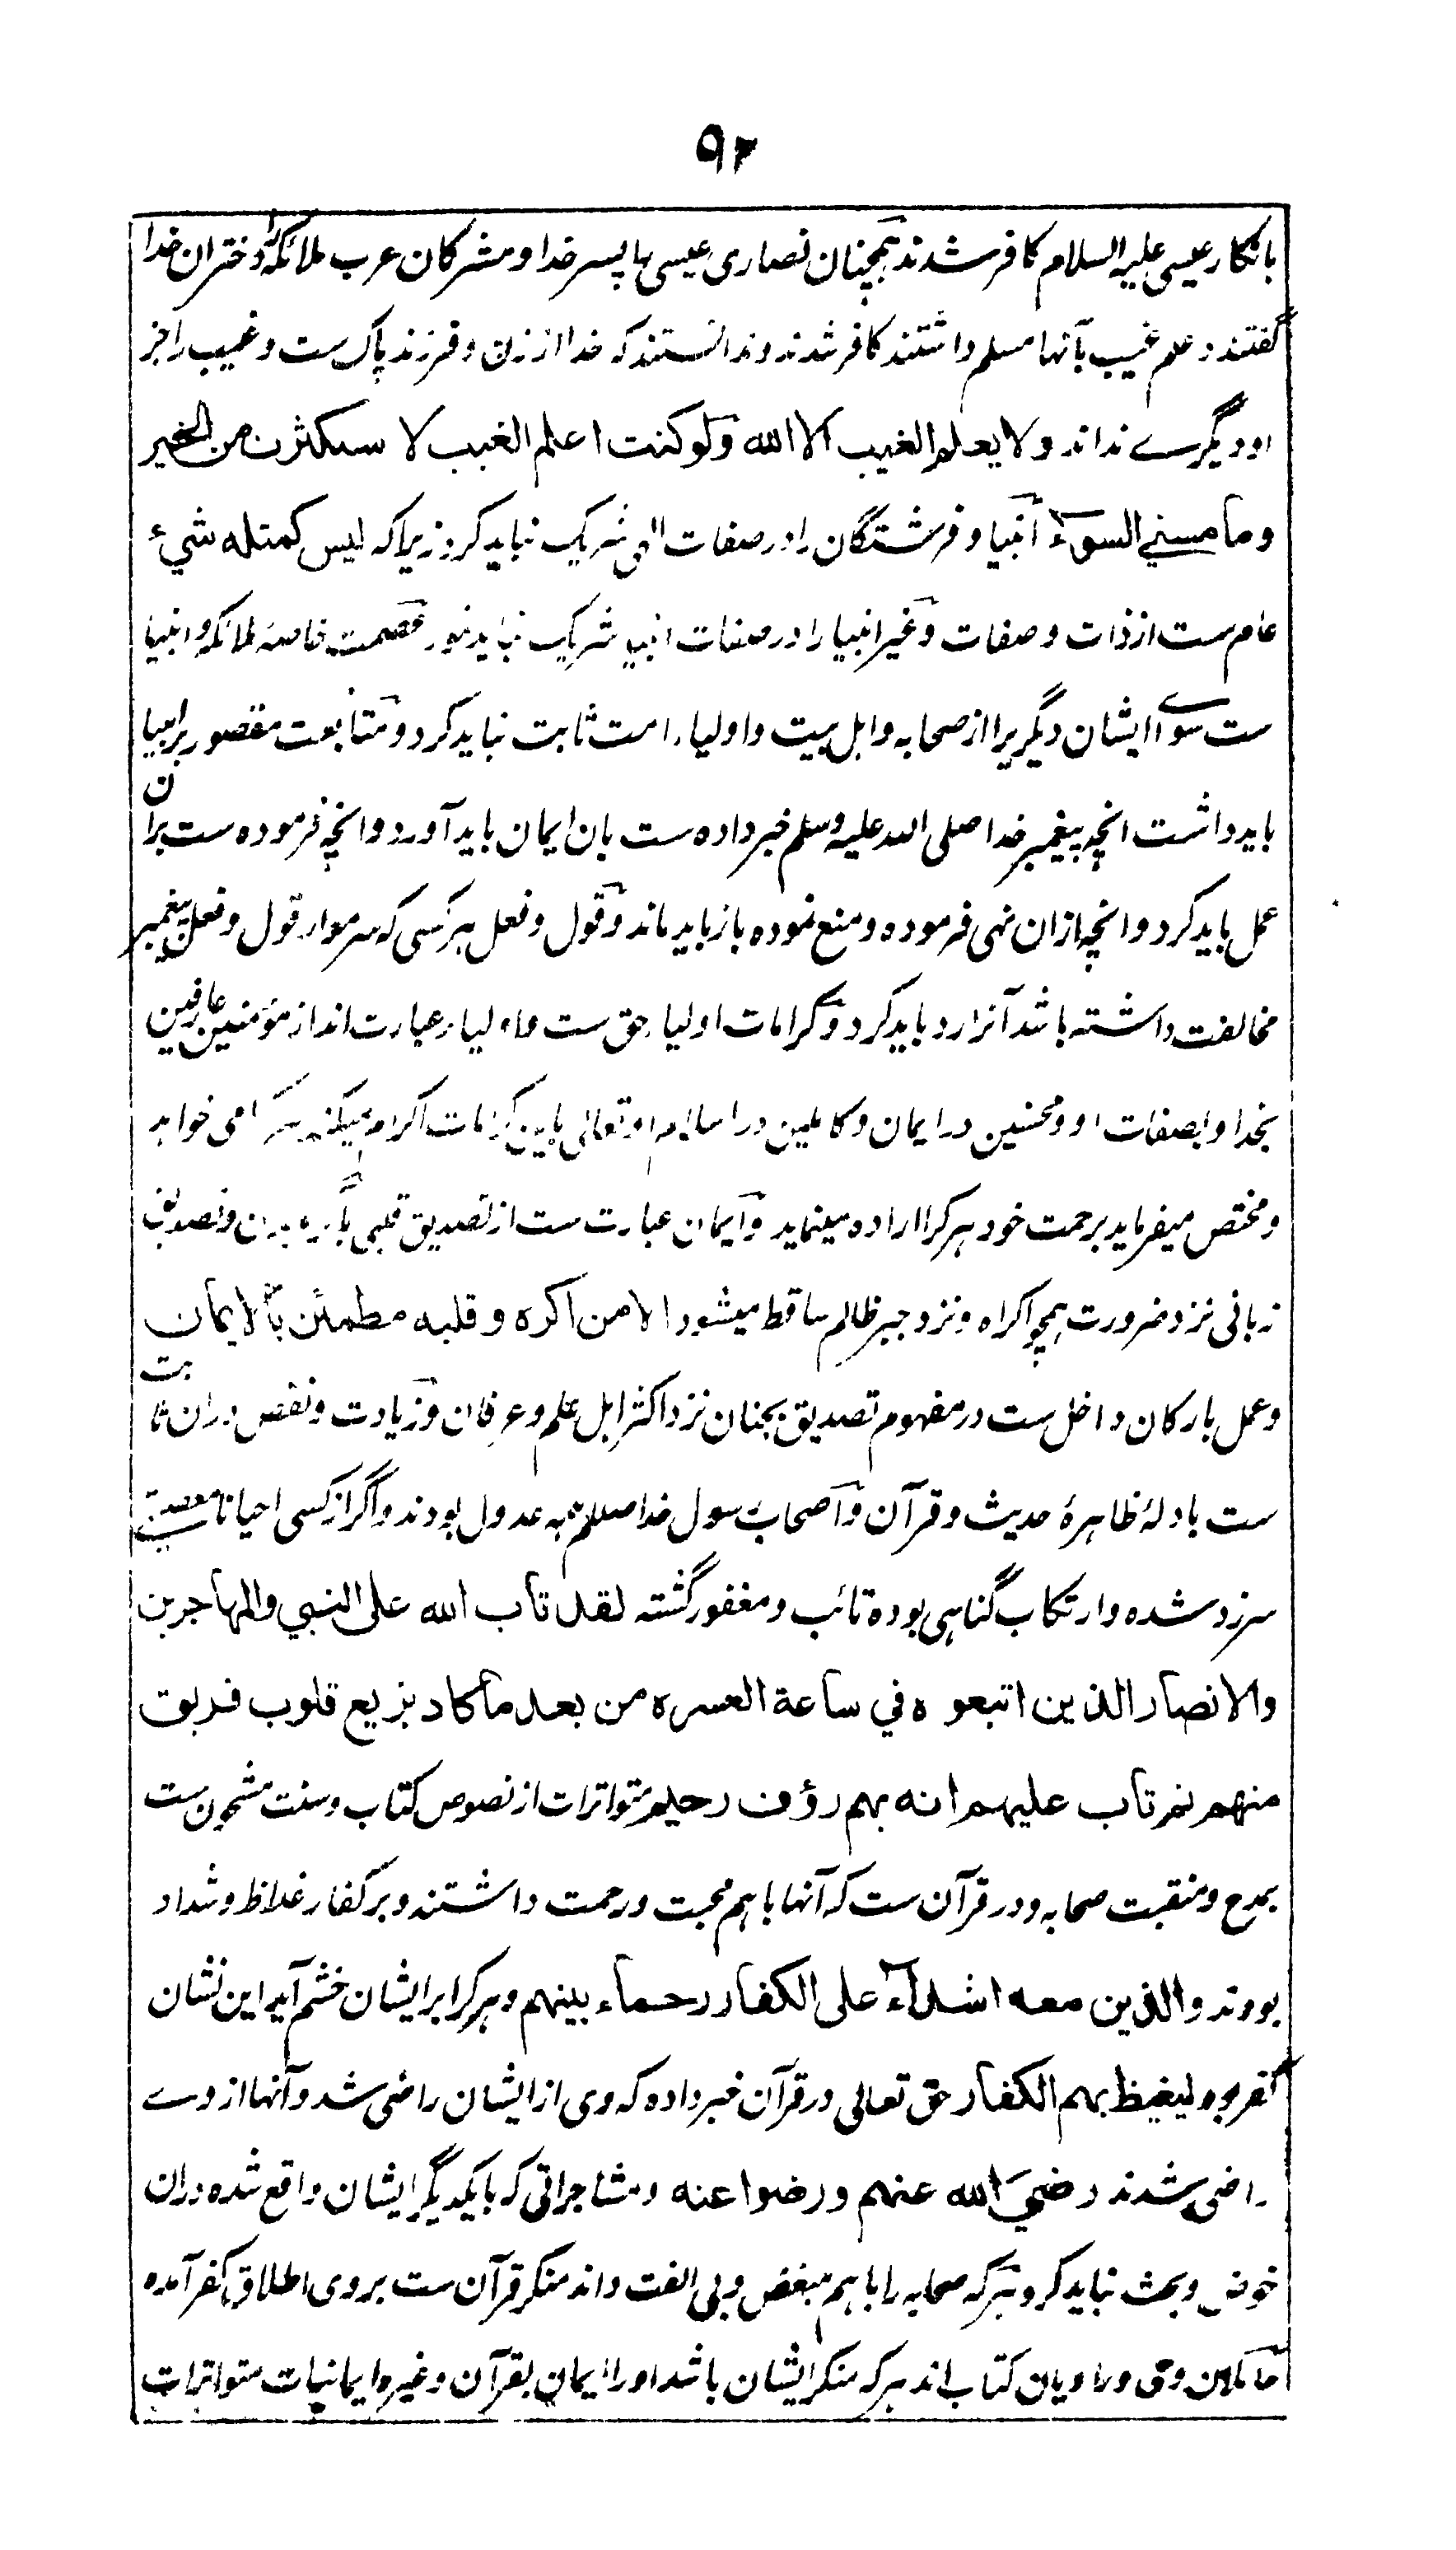 ۹۲
بانکار عیسی علیه السلام کافر شدند همچنان نصاری عیسی را پسر خدا و مشرکان عرب ملائکه را دختران خدا
گفتند و علم غیب بآنها مسلم داشتند کافر شدند و ندانستند که خدا از زن و فرزند پاک ست و غیب را جز
او دیگرے نداند و لا یعلم الغیب الا الله و لو کنت اعلم الغیب لا ستکثرت من الخیر
وما مسني السوء انبیا و فرشتگان را در صفات الهی شریک نباید کرد زیراکه لیس کمثله شيء
عام ست از ذات و صفات و غیر انبیا را در صفات انبیا شریک نباید نمود عصمت خاصه ملائکه و انبیا
ست سواے ایشان دیگریرا از صحابه و اهل بیت و اولیاء امت ثابت نباید کرد و متابعت مقصور بر انبیا
باید داشت انچه پیغمبر خدا صلی الله علیه وسلم خبر داده ست بان ایمان باید آورد و انچه فرموده ست بران
عمل باید کرد و انچه ازان نهی فرموده و منع نموده باز باید ماند و قول و فعل هر کسی که سر مو از قول و فعل پیغمبر
مخالفت داشته باشد آنرا رد باید کرد و کرامات اولیا حق ست و اولیاء عبارت اند از مؤمنین عارفین
بخدا و بصفات او و محسنین در ایمان و کاملین در اسلام او تعالی باین کرامات اکرام میکند هر کرا می خواهد
و مختص میفرماید برحمت خود هر کرا اراده مینماید و ایمان عبارت ست از تصدیق قلبی با و تصدیق
زبانی نزد ضرورت همچو اکراه و نزد جبر ظالم ساقط میشود الا من اکره و قلبه مطمئن بالایمان
و عمل بارکان داخل ست در مفهوم تصدیق بجنان نزد اکثر اهل علم و عرفان و زیادت و نقص دران ثابت
ست بادلهٔ ظاهرهٔ حدیث و قرآن و اصحاب رسول خدا صللم همه عدول بودند و اگر از کسی احیانا معصیت
سرزد شده و ارتکاب گناهی بوده تائب و مغفور گشته لقد تاب الله علی النبي والمهاجرین
والانصار الذین اتبعوه في ساعة العسره من بعد ما کاد یزیغ قلوب فریق
منهم ثم تاب علیهم انه بهم رؤف رحیم متواترات از نصوص کتاب و سنت مشحون ست
بمدح و منقبت صحابه و در قرآن ست که آنها باهم محبت و رحمت داشتند و بر کفار غلاظ و شداد
بودند والذین معه اشدآء علی الکفار رحماء بینهم و هر کرا بر ایشان خشم آید این نشان
کفر بود لیغیظ بهم الکفار حق تعالی در قرآن خبر داده که وی از ایشان راضی شد و آنها از وے
راضی شدند رضي الله عنهم ورضوا عنه و مشاجراتی که بایکدیگر ایشان واقع شده دران
خوض و بحث نباید کرد هر که صحابه را باهم مبغض و بی الفت داند منکر قرآن ست بر وی اطلاق کفر آمده
حاملان وحی و راویان کتاب اند هر که منکر ایشان باشد او را ایمان بقرآن و غیره ایمانیات متواترات